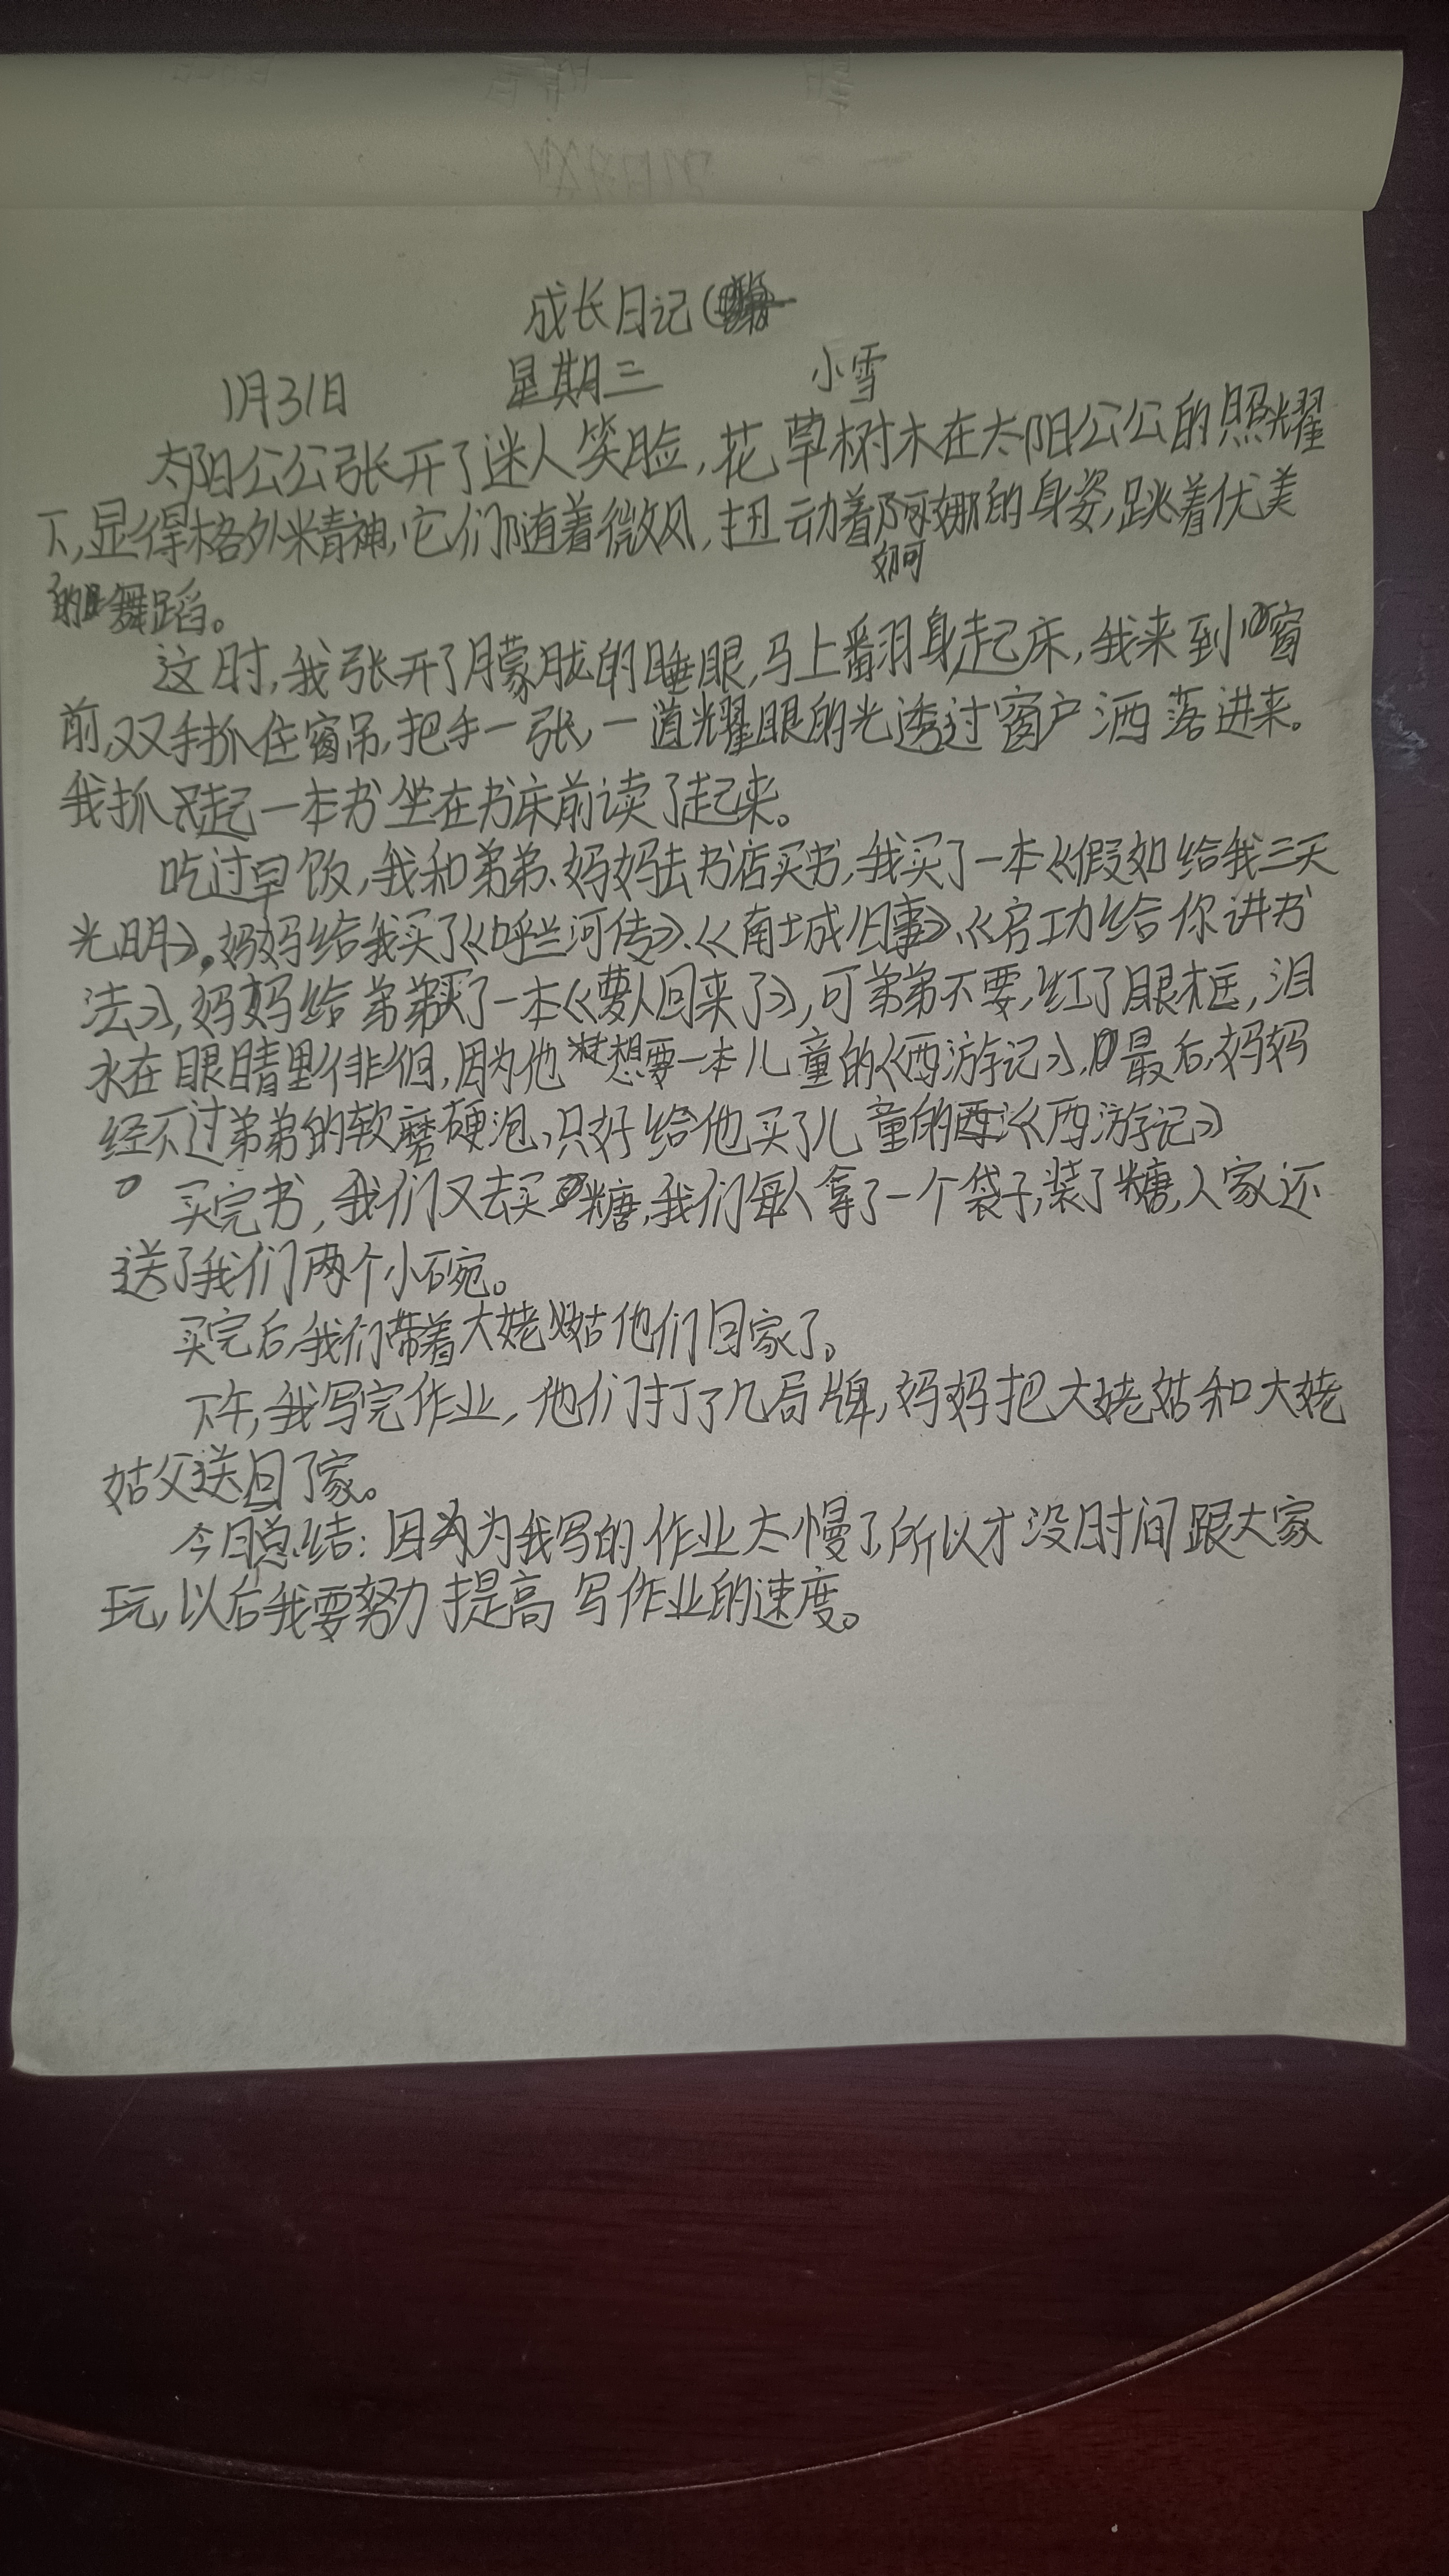 成长日记
1月31日 星期三 小雪
太阳公公张开了迷人笑脸,花草树木在太阳公公的照耀
下,显得格外精神,它们随着微风,扭动着阿娜的身姿,跳着优美
婀
的舞蹈。
这时,我张开了朦胧的睡眼,马上翻身起床,我来到窗
前,双手抓住窗帘,把手一张,一道耀眼的光透过窗户洒落进来。
我抓起一本书坐在书床前读了起来。
吃过早饭,我和弟弟、妈妈去书店买书,我买了一本《假如给我三天
光明》。妈妈给我买了《呼兰河传》、《南城旧事》、《启功给你讲书
法》,妈妈给弟弟买了一本《萝人回来了》,可弟弟不要,红了眼框,泪
水在眼睛里徘徊,因为他想要一本儿童的《西游记》,最后,妈妈
经不过弟弟的软磨硬泡,只好给他买了儿童的《西游记》
。买完书,我们又去买糖,我们每人拿了一个袋子,装了糖,人家还
送了我们两个小碗。
买完后,我们带着大姥姑他们回家了。
下午,我写完作业,他们打了几局牌,妈妈把大姥姑和大姥
姑父送回了家。
今日总结:因为为我写的作业太慢了,所以才没时间跟大家
玩,以后我要努力提高写作业的速度。